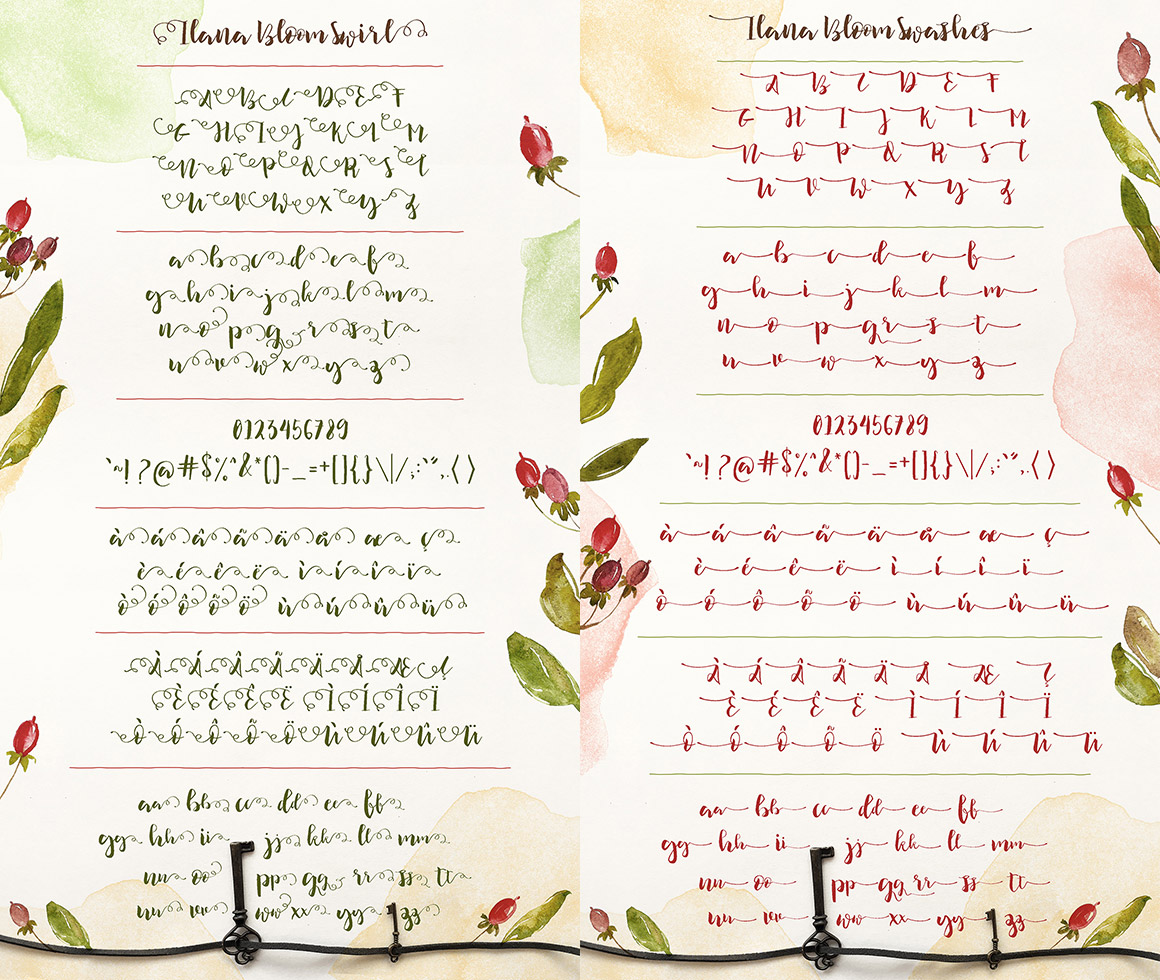 Ilana Bloom Swirl
A B C D E F
G H I J K L M
N O P Q R S T
U V W X Y Z
a b c d e f
g h i j k l m
n o p q r s t
u v w x y z
0123456789
`~!?@#$%^&*()-_=+[]{}\|/;:'",.<>
à á â ã ä å æ ç
è é ê ë ì í î ï
ò ó ô õ ö ù ú û ü
À Á Â Ã Ä Å Æ Ç
È É Ê Ë Ì Í Î Ï
Ò Ó Ô Õ Ö Ù Ú Û Ü
aa bb cc dd ee ff
gg hh ii jj kk ll mm
nn oo pp qq rr ss tt
uu vv ww xx yy zz
Ilana Bloom Swashes
A B C D E F
G H I J K L M
N O P Q R S T
U V W X Y Z
a b c d e f
g h i j k l m
n o p q r s t
u v w x y z
0123456789
`~!?@#$%^&*()-_=+[]{}\|/;:'",.<>
à á â ã ä å æ ç
è é ê ë ì í î ï
ò ó ô õ ö ù ú û ü
À Á Â Ã Ä Å Æ Ç
È É Ê Ë Ì Í Î Ï
Ò Ó Ô Õ Ö Ù Ú Û Ü
aa bb cc dd ee ff
gg hh ii jj kk ll mm
nn oo pp qq rr ss tt
uu vv ww xx yy zz